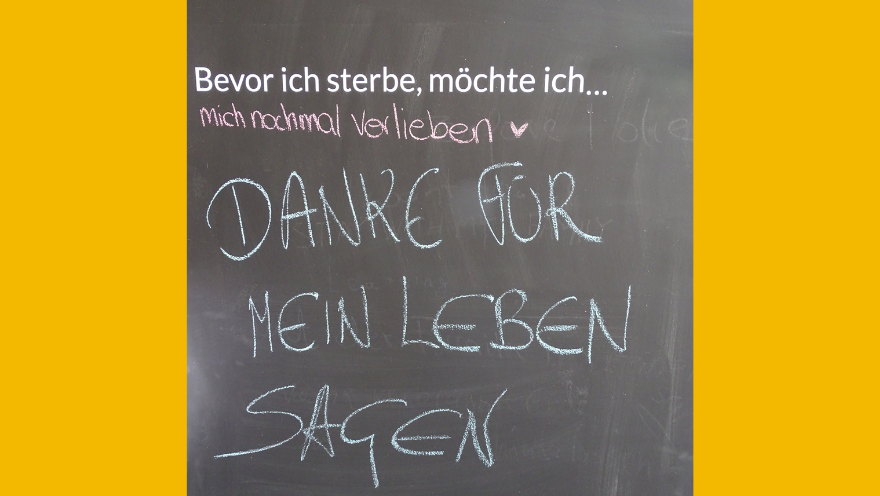 Bevor ich sterbe, möchte ich...
mich nochmal verlieben ♥
DANKE FÜR
MEIN LEBEN
SAGEN